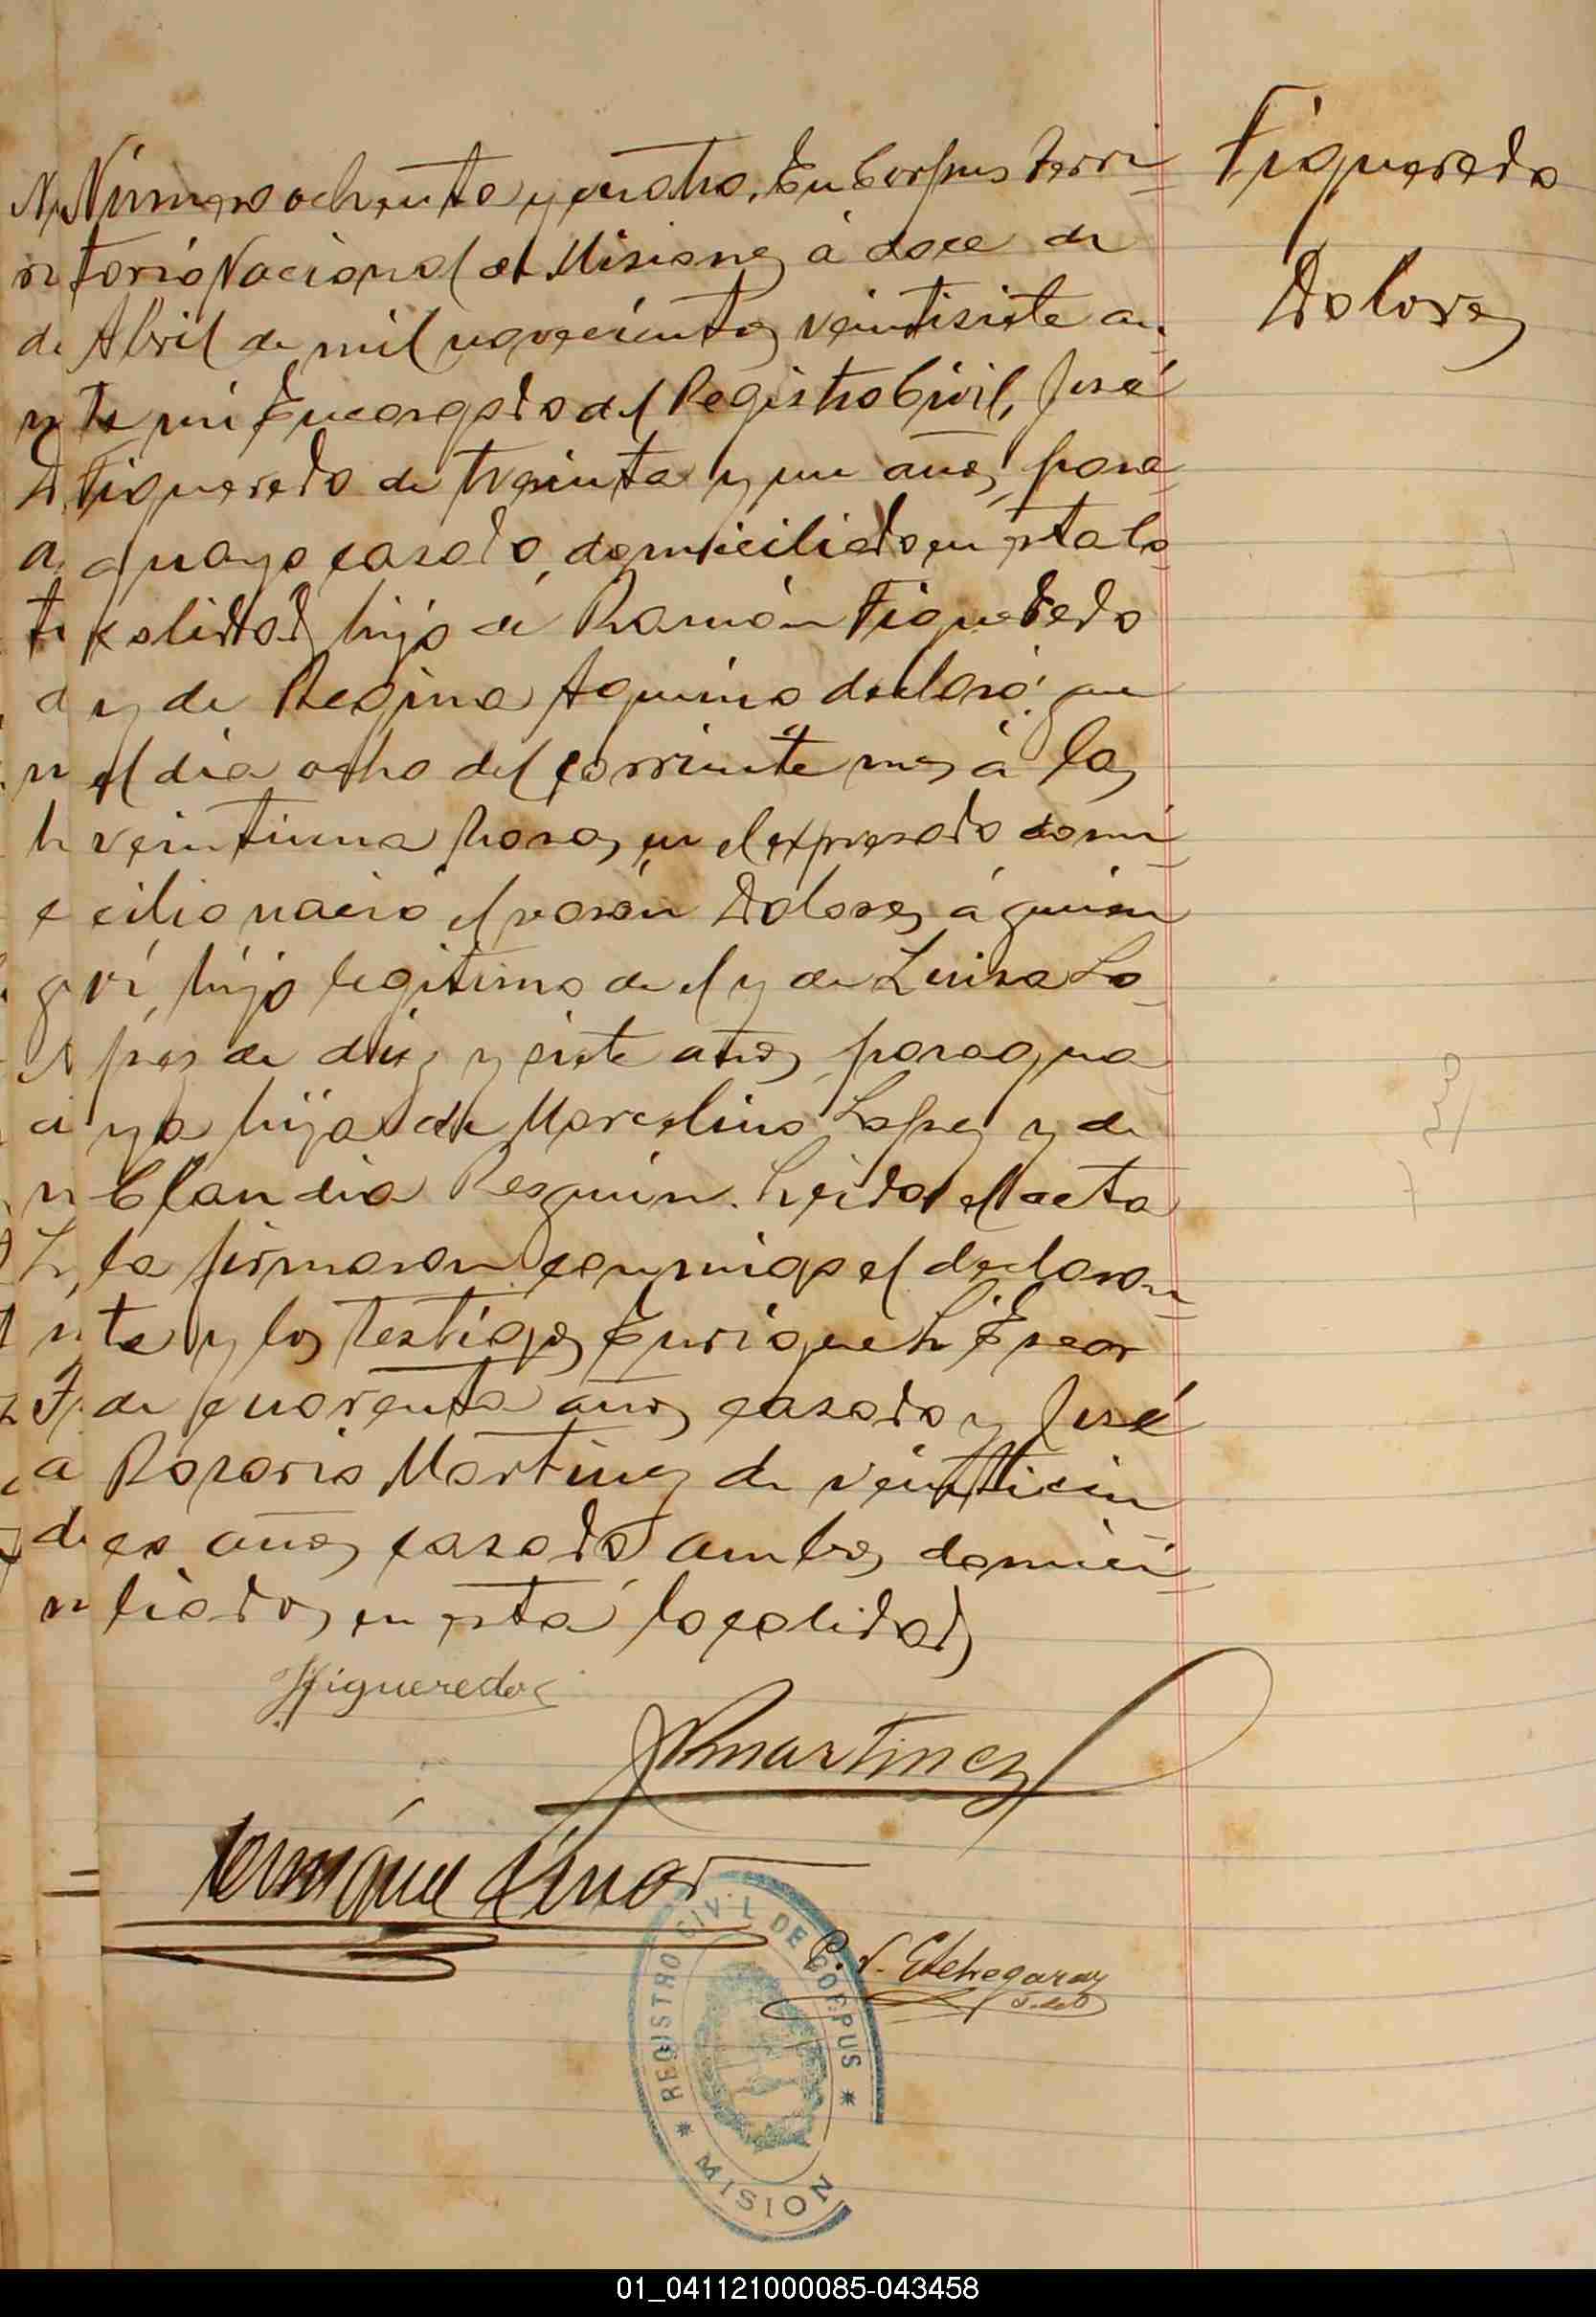 Figueredo
Dolores
Número ochenta y cuatro. En Corpus Terri-
torio Nacional de Misiones á doce de
Abril de mil novecientos veintisiete an-
te mí Encargado del Registro Civil, José
Figueredo de treinta y un años, para-
guayo casado, domiciliado en esta lo-
calidad, hijo de Ramón Figueredo
y de Regina Aquino declaró: que
el dia ocho del corriente mes á las
veintiuna horas, en el expresado domi-
cilio nació el varón Dolores, á quien
ví, hijo legitimo de el y de Luisa Lo-
pez de diez y siete años, paragua-
ya hija de Marcelino Lopez y de
Claudia Resquin. Leida el acta
la firmaron conmigo el declaran-
te y los testigos Enrique L.
de cuarenta años, casado y José
Rosario Martinez de veinticin-
co años, casado ambos domici-
liados, en esta localidad,
JFigueredo
JRMartinez
Enrique
REGISTRO CIVIL DE CORPUS
P. V. Etchegaray
MISION
01_041121000085-043458